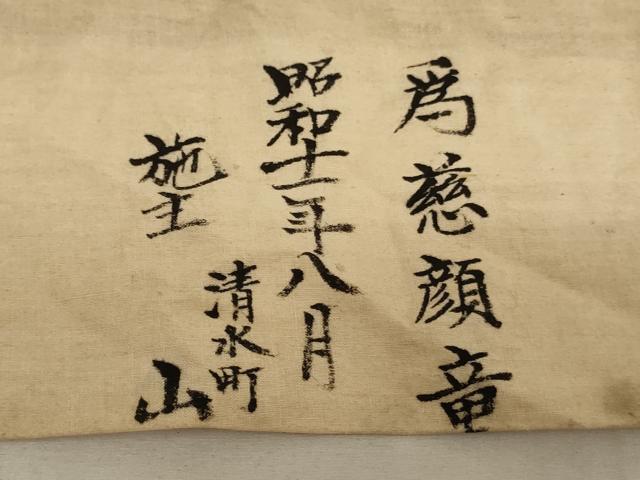 為慈顔童
昭和十一年八月
清水町
施主 山